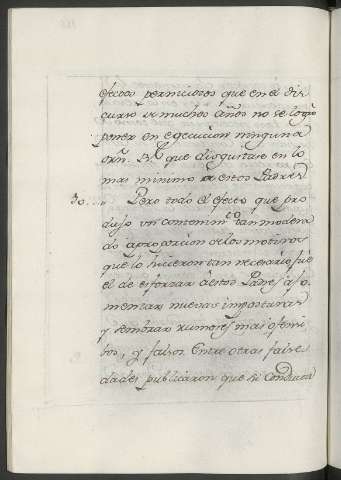 efectos perniciosos que en el dis
curso de muchos años no se logró
poner en egecucion ninguna
orn. que disgustase en lo
mas minimo a estos Padres
30.... Pero todo el efecto que pro
dujo un contenim.to tan modera
do a proporcion de los motivos
que lo hicieron tan necesario fué
el de esforzar a estos Padres a fo
mentar nuevas imposturas
y sembrar rumores mas ofensi
bos, y falsos. Entre otras falses
dades publicaron que se conducia